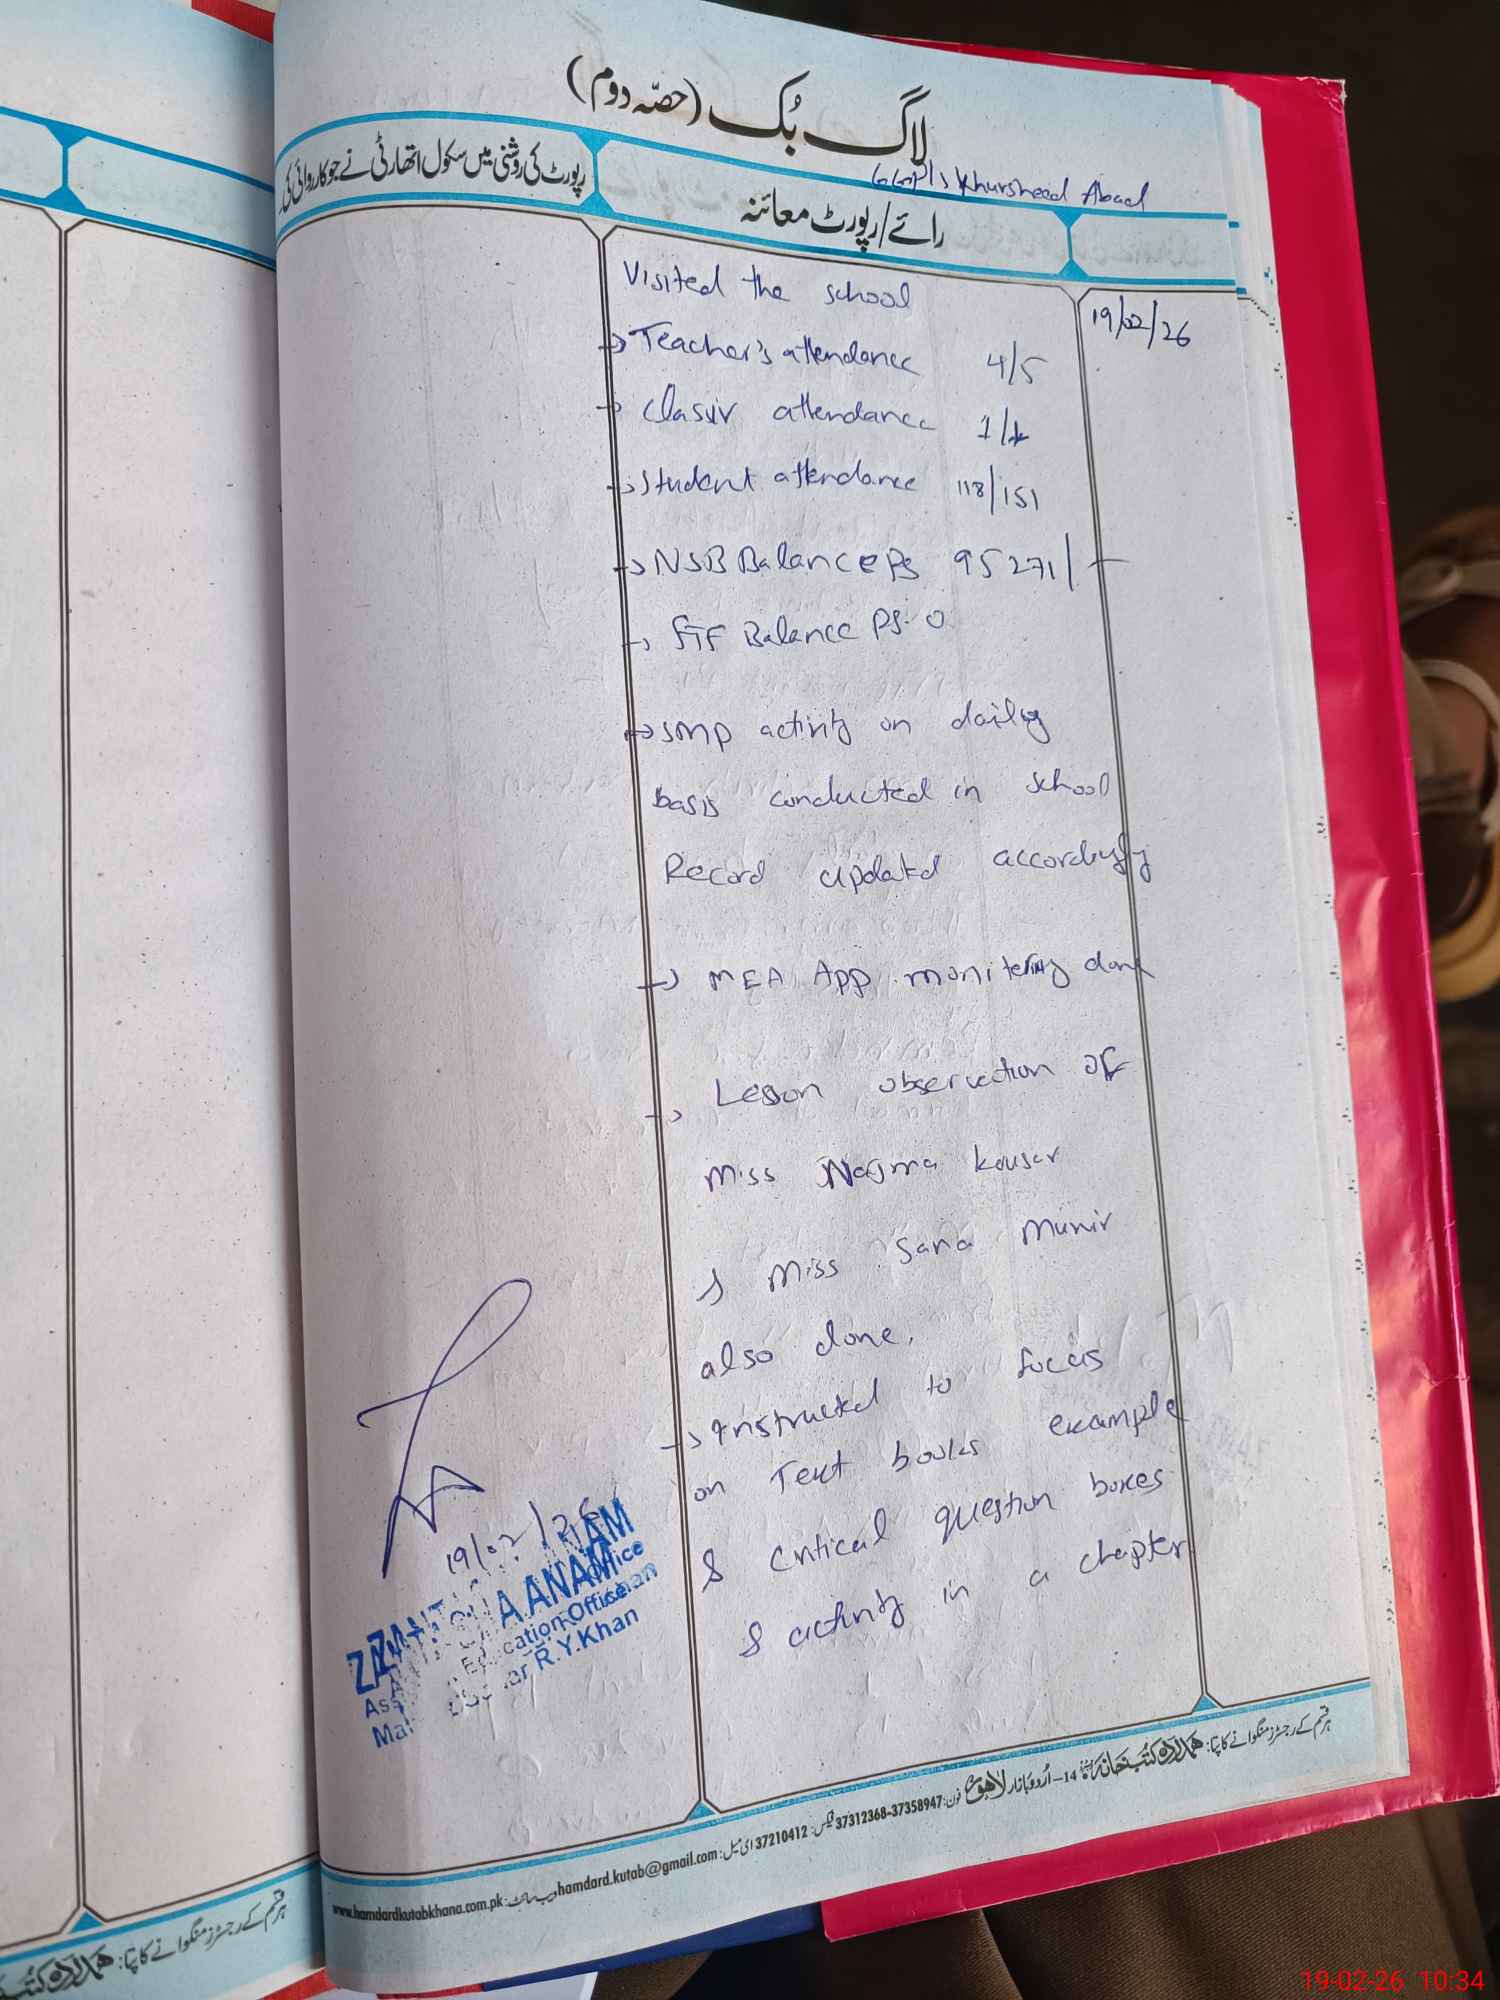 لاگ بُک (حصّہ دوم)
GGP/S Khursheed Abad
رپورٹ کی روشنی میں سکول اتھارٹی نے جو کارروائی کی
رائے/رپورٹ معائنہ
19/02/26
Visited the school
→ Teacher's attendance 4/5
→ attendance 1/1
→ Student attendance 118/151
→ NSB Balance Rs 95271/-
→ FTF Balance Rs. 0
→ SMP activity on daily
basis conducted in school
Record updated accordingly
→ MEA App monitering done
→ Lesson observation of
Miss Najma kousar
& Miss Sana Munir
also done.
→ Instructed to focus
on Text books example
& Critical question boxes
& activity in a chapter
19/02/26
ANAM
Education Officer
R.Y.Khan
ہر قسم کے رجسٹرز منگوانے کا پتا: ہمدرد کتب خانہ 14-اُردو بازار لاہور فون: 37358947-37312368 فیکس: 37210412 ای میل: hamdard.kutab@gmail.com ویب سائٹ: www.hamdardkutabkhana.com.pk
ہر قسم کے رجسٹرز منگوانے کا پتا: ہمدرد کتب
19-02-26 10:34